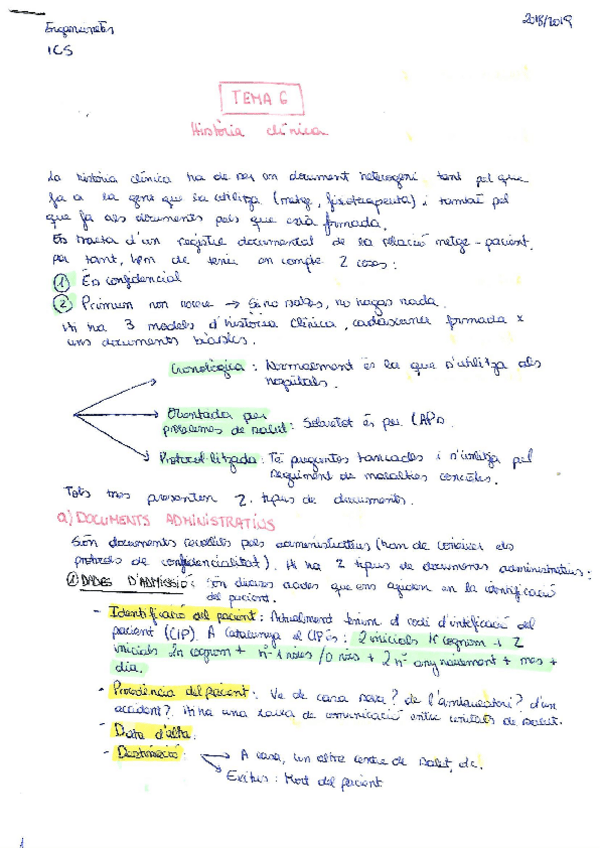 2018/2019
ICS
TEMA 6
Història clínica
La història clínica ha de ser un document heterogeni tant pel que
fa a la gent que la utilitza (metge, fisioterapeuta) i també pel
que fa als documents pels que està formada.
Es tracta d'un registre documental de la relació metge-pacient.
Per tant, hem de tenir en compte 2 coses:
1 És confidencial
2 Primum non nocere → Si no sabes, no hagas nada.
Hi ha 3 models d'història clínica, cadascuna formada x
uns documents bàsics.
Cronològica: Normalment és la que s'utilitza als
hospitals.
Orientada per
problemes de salut: Sobretot és per CAPs.
Protocol·litzada: Té preguntes tancades i s'utilitza pel
seguiment de malalties concretes.
Tots tres presenten 2 tipus de documents.
a) DOCUMENTS ADMINISTRATIUS
Són documents recollits pels administratius (han de conèixer els
protocols de confidencialitat). Hi ha 2 tipus de documents administratius:
1 DADES D'ADMISSIÓ: Són diverses dades que ens ajuden en la identificació
del pacient.
- Identificació del pacient: Actualment tenim el codi d'intificació del
pacient (CIP). A Catalunya el CIP és: 2 inicials 1r cognom + 2
inicials 2n cognom + nº 1 noies / 0 nois + 2 nº any naixement + mes +
dia.
- Procedència del pacient: Ve de casa seva? de l'ambulatori? d'un
accident? Hi ha una xarxa de comunicació entre centres de salut.
- Data d'alta.
- Destinació: → A casa, un altre centre de salut, etc.
→ Exitus: Mort del pacient
1